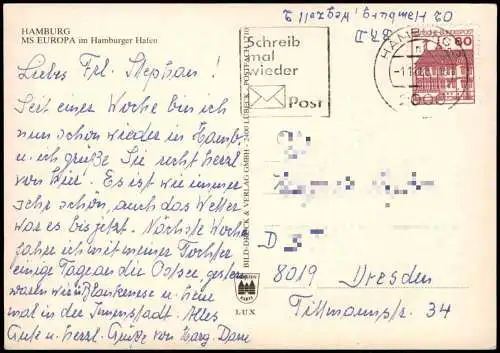 HAMBURG
MS EUROPA im Hamburger Hafen
Liebes Frl. Stephan!
Seit einer Woche bin ich
nun schon wieder in Hambg
u. ich grüße Sie recht herzl.
von hier. Es ist wie immer
sehr schön, auch das Wetter
war es bis jetzt. Nächste Woche
fahre ich mit meiner Tochter
einige Tage an die Ostsee, gestern
waren wir in Blankenese u. heute
mal in der Innenstadt. Alles
Gute u. herzl. Grüße von Marg.
BILD-DRUCK & VERLAG GMBH · 2400 LÜBECK · POSTFACH
LUX
Schreib
mal
wieder
Post
Hamburg,
2
HAMBURG
2000
60
D
8019 Dresden
Tittmannstr. 34